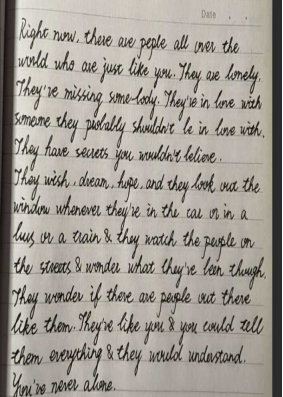 Date . .
Right now, there are peple all over the
world who are just like you. They are lonely.
They're missing some-body. They're in love with
someone they probably shouldn't be in love with.
They have secrets you wouldn't believe.
They wish, dream, hope, and they look out the
window whenever they're in the car or in a
bus or a train & they watch the people on
the streets & wonder what they've been though.
They wonder if there are people out there
like them. They're like you & you could tell
them everything & they would understand.
You've never alone.